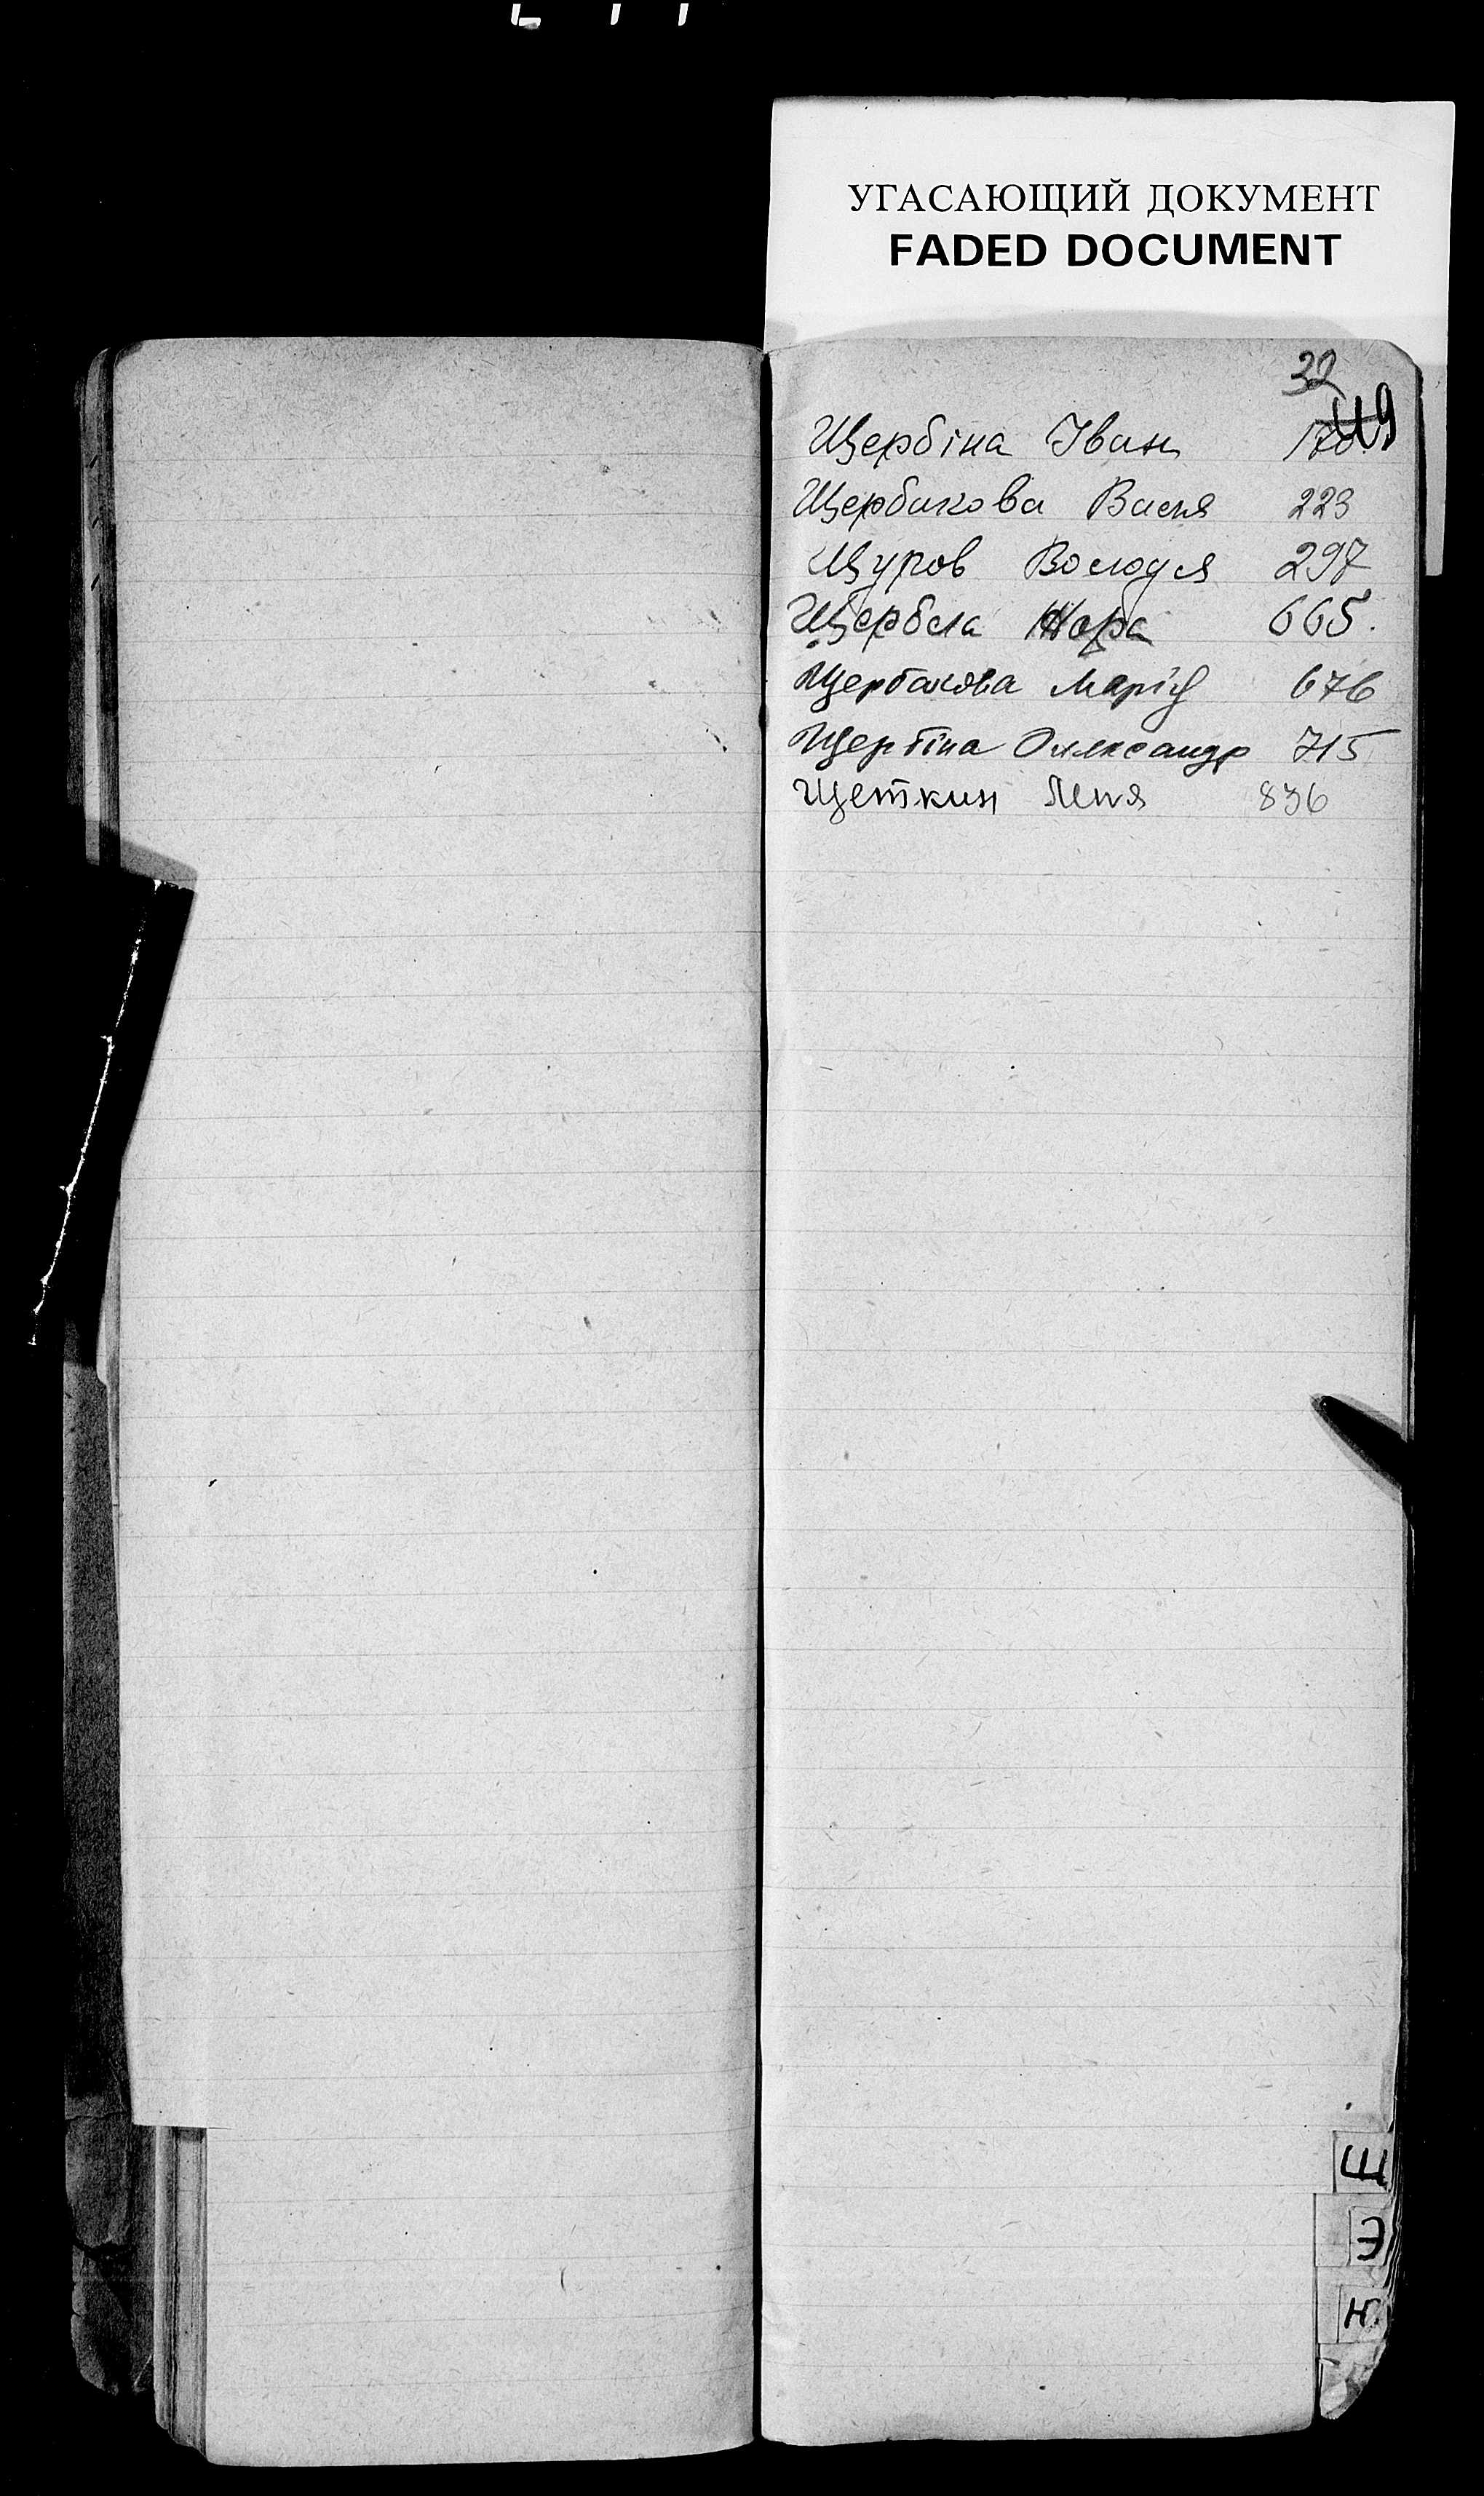 УГАСАЮЩИЙ ДОКУМЕНТ
FADED DOCUMENT
32
119
Щербіна Іван 170
Щербакова Васия 223
Щуров Володя 297
Щербела Нора 665.
Щербакова Марія 676
Щербіна Олександр 715
Щеткин Леня 836
Щ
Э
Ю